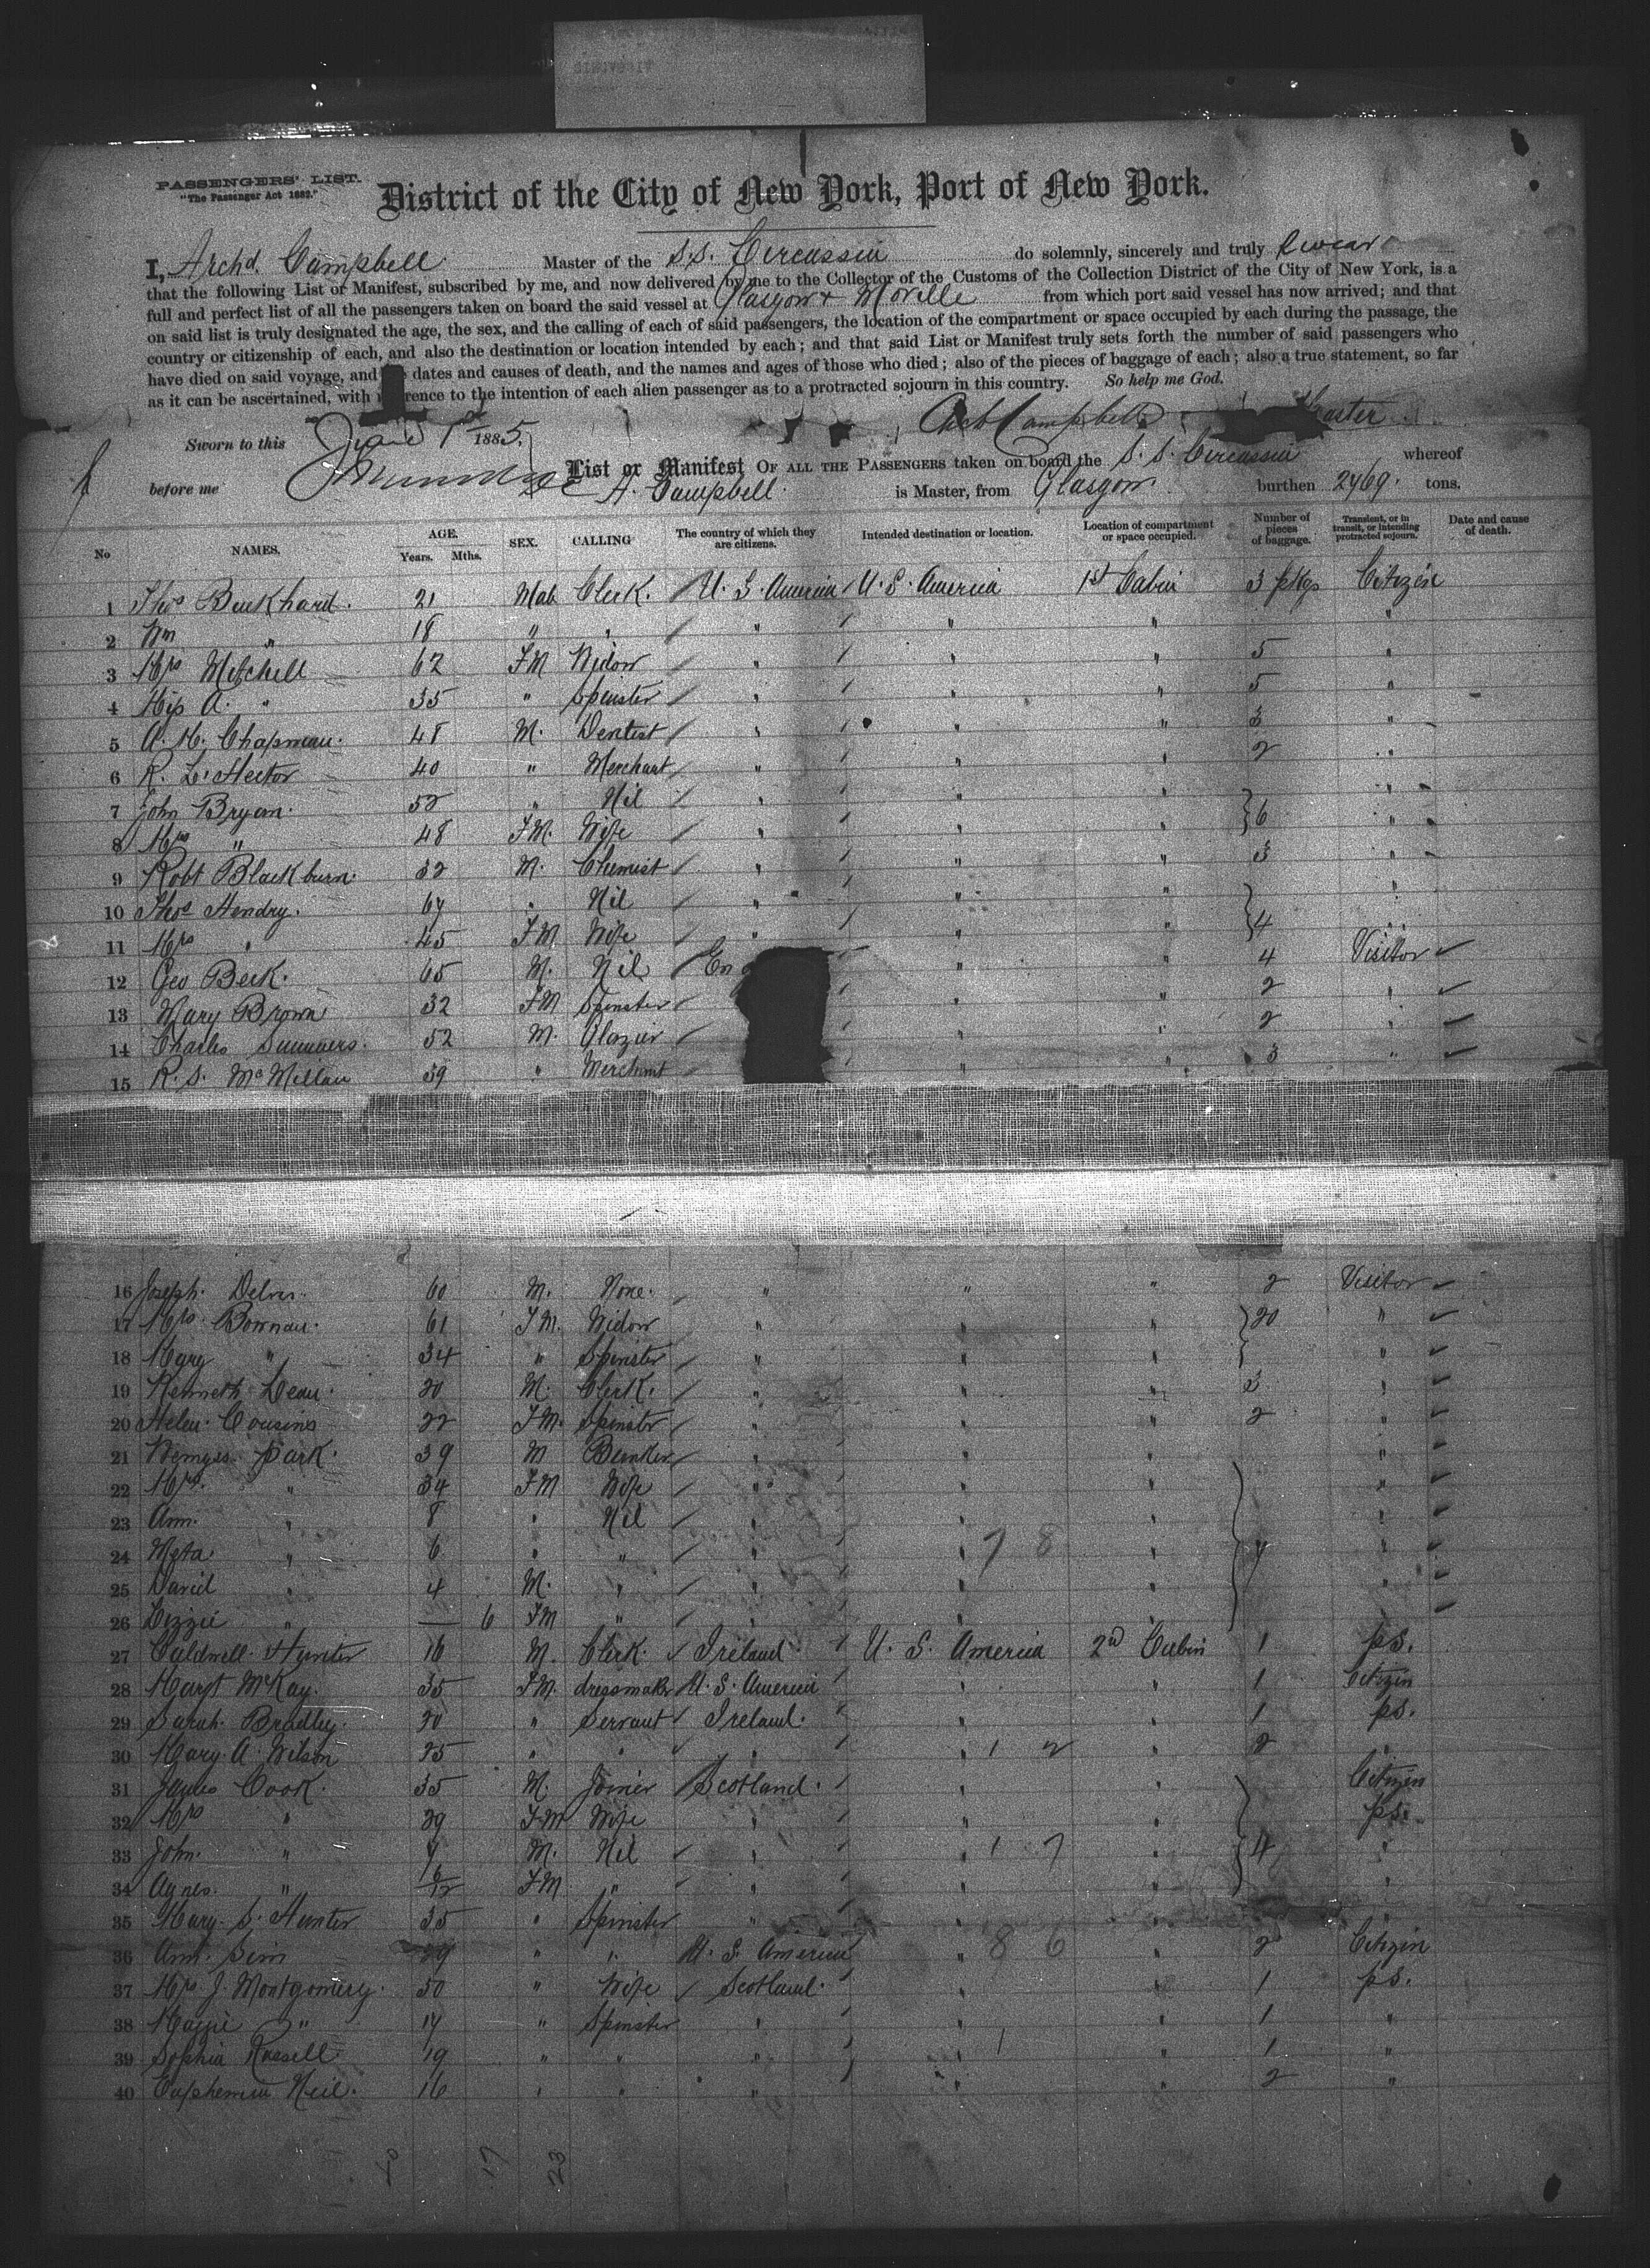 PASSENGERS' LIST.
"The Passenger Act 1882."
District of the City of New York, Port of New York.
I, Archd. Campbell Master of the S.S. Circassia do solemnly, sincerely and truly swear
that the following List or Manifest, subscribed by me, and now delivered by me to the Collector of the Customs of the Collection District of the City of New York, is a
full and perfect list of all the passengers taken on board the said vessel at Glasgow & Moville from which port said vessel has now arrived; and that
on said list is truly designated the age, the sex, and the calling of each of said passengers, the location of the compartment or space occupied by each during the passage, the
country or citizenship of each, and also the destination or location intended by each; and that said List or Manifest truly sets forth the number of said passengers who
have died on said voyage, and dates and causes of death, and the names and ages of those who died; also of the pieces of baggage of each; also a true statement, so far
as it can be ascertained, with rence to the intention of each alien passenger as to a protracted sojourn in this country. So help me God.
Arch Campbell Master
Sworn to this June 1st 1885.
List or Manifest OF ALL THE PASSENGERS taken on board the S.S. Circassia whereof
before me A. Campbell is Master, from Glasgow burthen 2769 tons.
No NAMES. AGE. Years. Mths. SEX. CALLING The country of which they are citizens. Intended destination or location. Location of compartment or space occupied. Number of pieces of baggage. Transient, or in transit, or intending protracted sojourn. Date and cause of death.
1 Thos Burkhard. 21 Male Clerk. U.S. America U.S. America 1st Cabin 3 pkgs Citizen
2 Wm " 18 " " " " " "
3 Mrs Mitchell 62 FM Widow " " " 5 "
4 Miss A. " 35 " Spinster " " " 5 "
5 A. H. Chapman. 48 M. Dentist " " " 3 "
6 R. L. Hector 40 " Merchant " " " 2 "
7 John Bryan. 52 " Nil " " " "
8 Mrs " 48 FM. Wife " " " 6 "
9 Robt Blackburn. 32 M. Chemist " " " 3 "
10 Thos Hendry. 67 " Nil " " " "
11 Mrs " 45 FM Wife " " " 4 "
12 Geo Beck. 65 M. Nil En " " 4 Visitor
13 Mary Brown 32 FM Spinster " " 2 "
14 Charles Summers. 52 M. Glazier " " 2 "
15 R. S. McMillan 39 " Merchant " " 3 "
16 Joseph 60 M. None. " " " 2 Visitor
17 Mrs Bowman. 61 FM. Widow " " " 20 "
18 Mary " 34 " Spinster " " " "
19 Kenneth Lean. 20 M. Clerk. " " " 3 "
20 Helen Cousins 22 FM. Spinster " " " 2 "
21 Wemyss Park. 39 M Banker " " " "
22 Mrs. " 34 FM Wife " " " "
23 Ann. " 8 " Nil " " " "
24 Meta " 6 " " " " 7 8 " 7 "
25 David " 4 M. " " " " "
26 Lizzie " — 6 FM " " " " "
27 Caldwell Hunter 16 M. Clerk. Ireland U. S. America 2nd Cabin 1 ps.
28 Margt McKay. 35 FM. dressmaker U.S. America " " 1 Citizen
29 Sarah Bradley. 20 " Servant Ireland. " " 1 ps.
30 Mary A. Wilson 25 " " " " 1 2 " 2 "
31 James Cook. 35 M. Joiner Scotland. " " Citizen
32 Mrs " 29 FM Wife " " " ps.
33 John. " 4 M. Nil " " 1 7 " 4 "
34 Agnes. " 6/12 FM " " " " "
35 Mary S. Hunter 35 " Spinster " " " "
36 Ann. Sim 29 " " U. S. America " 8 6 " 2 Citizen
37 Mrs J. Montgomery. 50 " Wife Scotland. " " 1 ps.
38 Maggie " 17 " Spinster " " " 1 "
39 Sophia Russell 19 " " " " 1 " 1 "
40 Euphemia Neil. 16 " " " " " 2 "
40 17 23